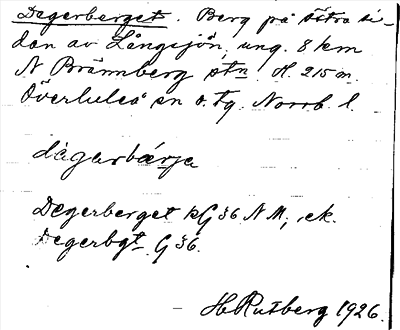 Degerberget. Berg på östra si-
dan av Långsjön, ung. 8 km
N Brännberg stn. H. 215 m.
Överluleå sn o. tg. Norrb. l.
dágarbárja
Degerberget kG 36 NM, ek.
Degerbgt G 36.
H Rutberg 1926.